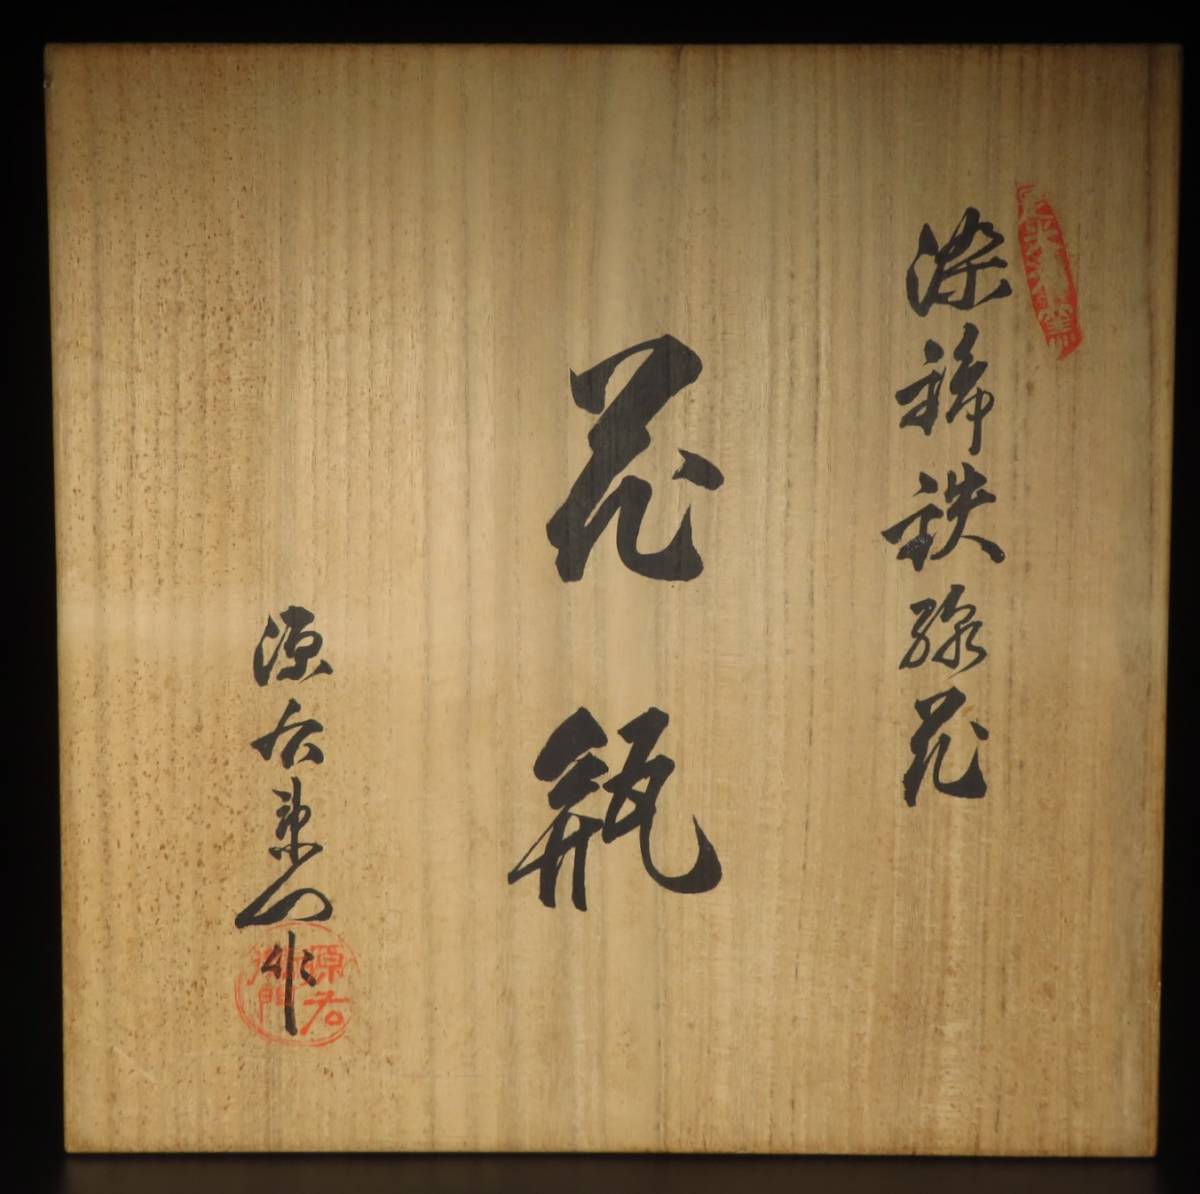 染錦鉄線花
花瓶
源右衛門作
源右衛門